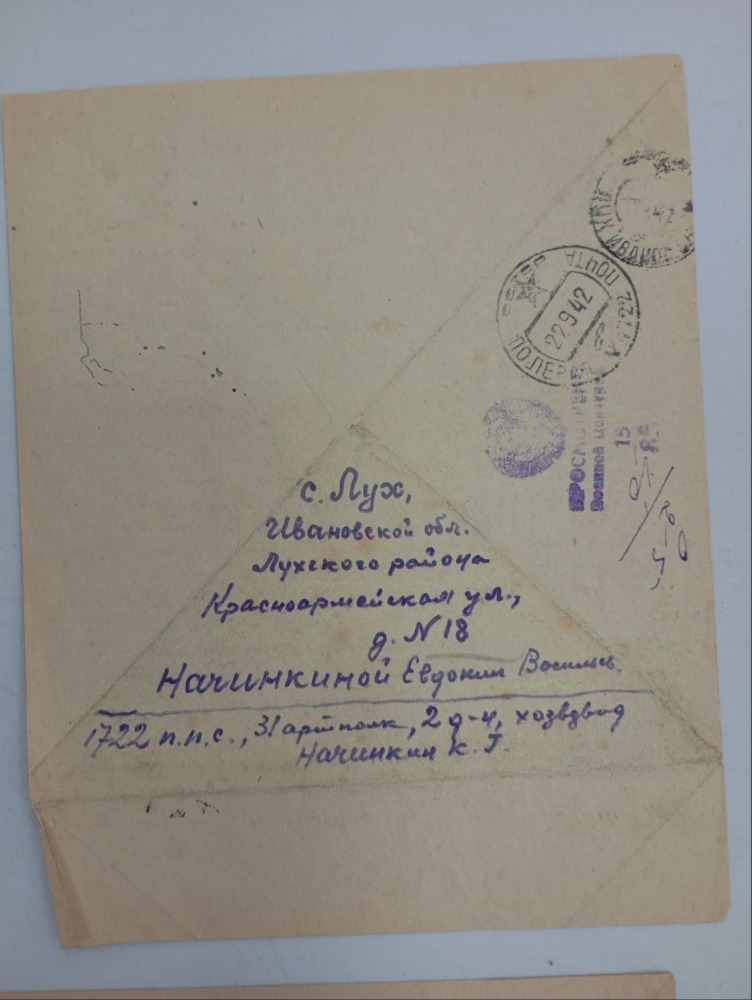 ИВАНОВ
ПОЛЕВАЯ ПОЧТА
22 9 42
ПРОСМОТРЕНО
Военной Цензурой
15
с. Лух,
Ивановской обл.
Лухского района
Красноармейская ул.,
д. N 18
Начинкиной Евдокии Васильев.
1722 п.п.с., 31 артполк, 2 д-н, хозвзвод
Начинкин К. Г.